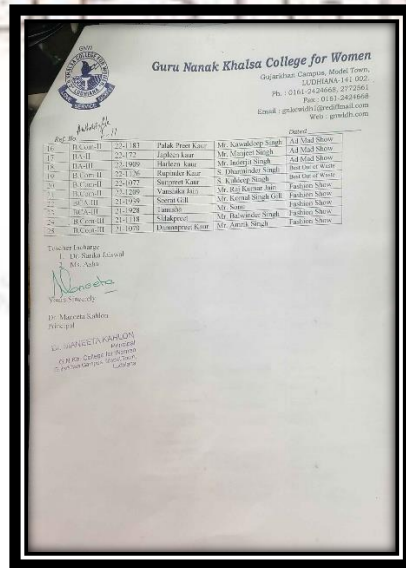 Guru Nanak Khalsa College for Women
Gujarkhan Campus, Model Town,
LUDHIANA-141 002.
Ph. : 0161-2424668, 2772561
Fax : 0161-2424668
Web : gnkcwldh.com
Ref. No.
Dated
16 B.Com-II 22-1183 Palak Preet Kaur Mr. Kawaldeep Singh Ad Mad Show
17 BA-II 22-172 Japleen Kaur Mr. Manjeet Singh Ad Mad Show
18 BA-III Harleen Kaur Mr. Inderjit Singh Ad Mad Show
19 B.Com-II 22-1126 Rupinder Kaur S. Dharminder Singh Best Out of Waste
20 B.Com-II 22-1077 Surpreet Kaur S. Kuldeep Singh Best Out of Waste
B.Com-II 22-1209 Vanshika Jain Mr. Raj Kumar Jain Fashion Show
22 BCA-III 21-1939 Seerat Gill Mr. Komal Singh Gill Fashion Show
BCA-III 21-1928 Tanisha Mr. Sonu Fashion Show
24 B.Com-III 21-1118 Sidakpreet Mr. Balwinder Singh Fashion Show
25 B.Com-III 21-1070 Mr. Amrik Singh Fashion Show
Teacher Incharge
1. Dr.
2. Ms.
Yours Sincerely
Dr. Maneeta Kahlon
Principal
Dr. MANEETA KAHLON
Principal
G.N.Kh. College for Women
Gujarkhan Campus Model Town
Ludhiana